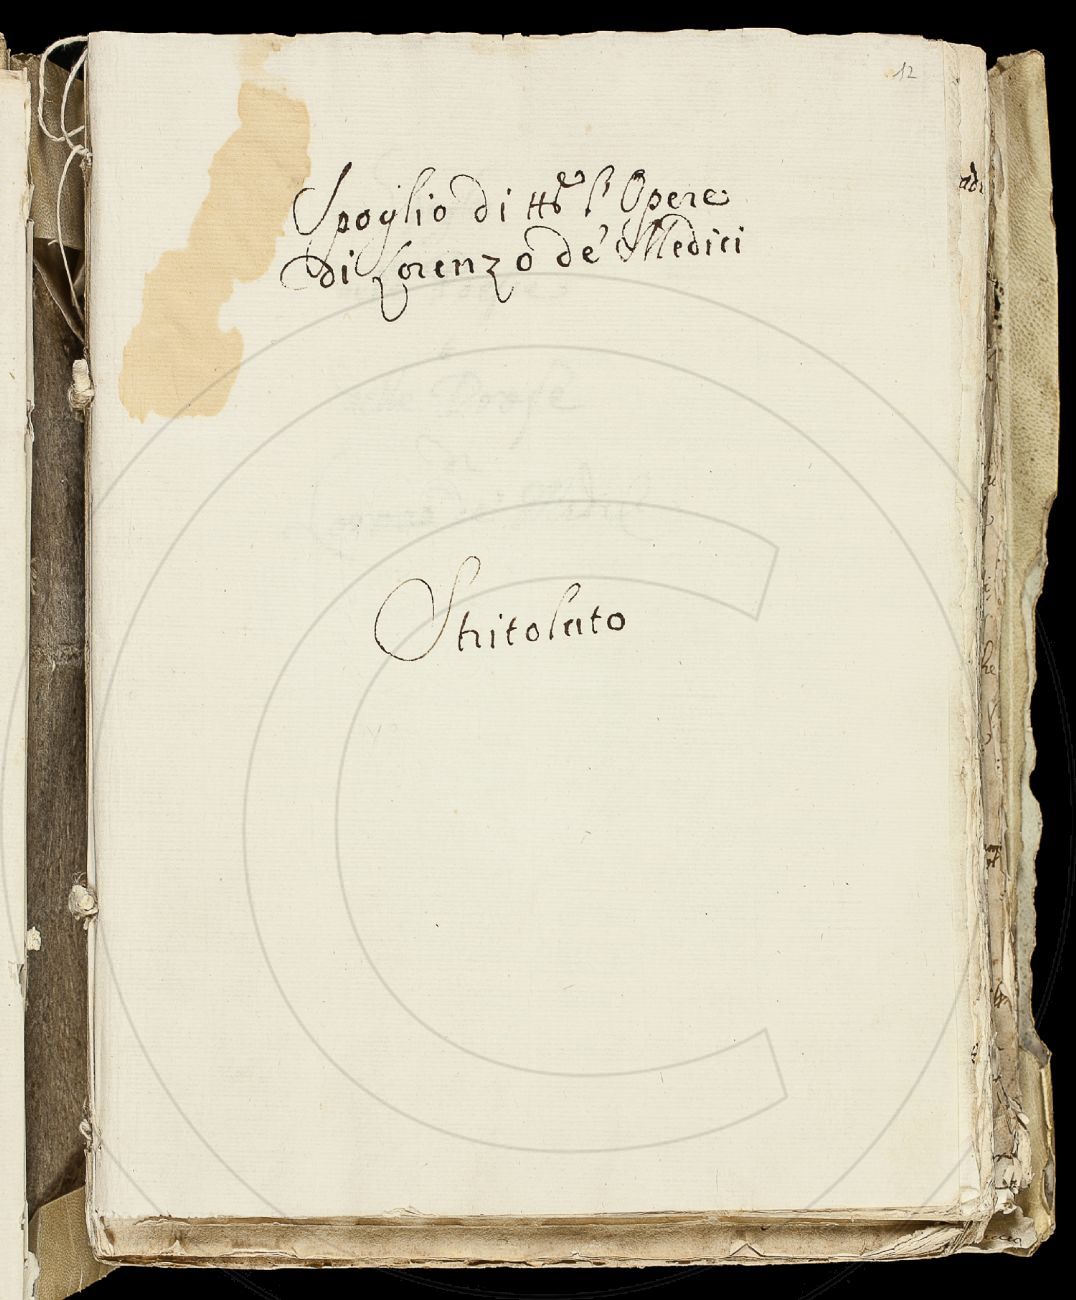 12
Spoglio di tt.e l'Opere
di Lorenzo de' Medici
Stritolato